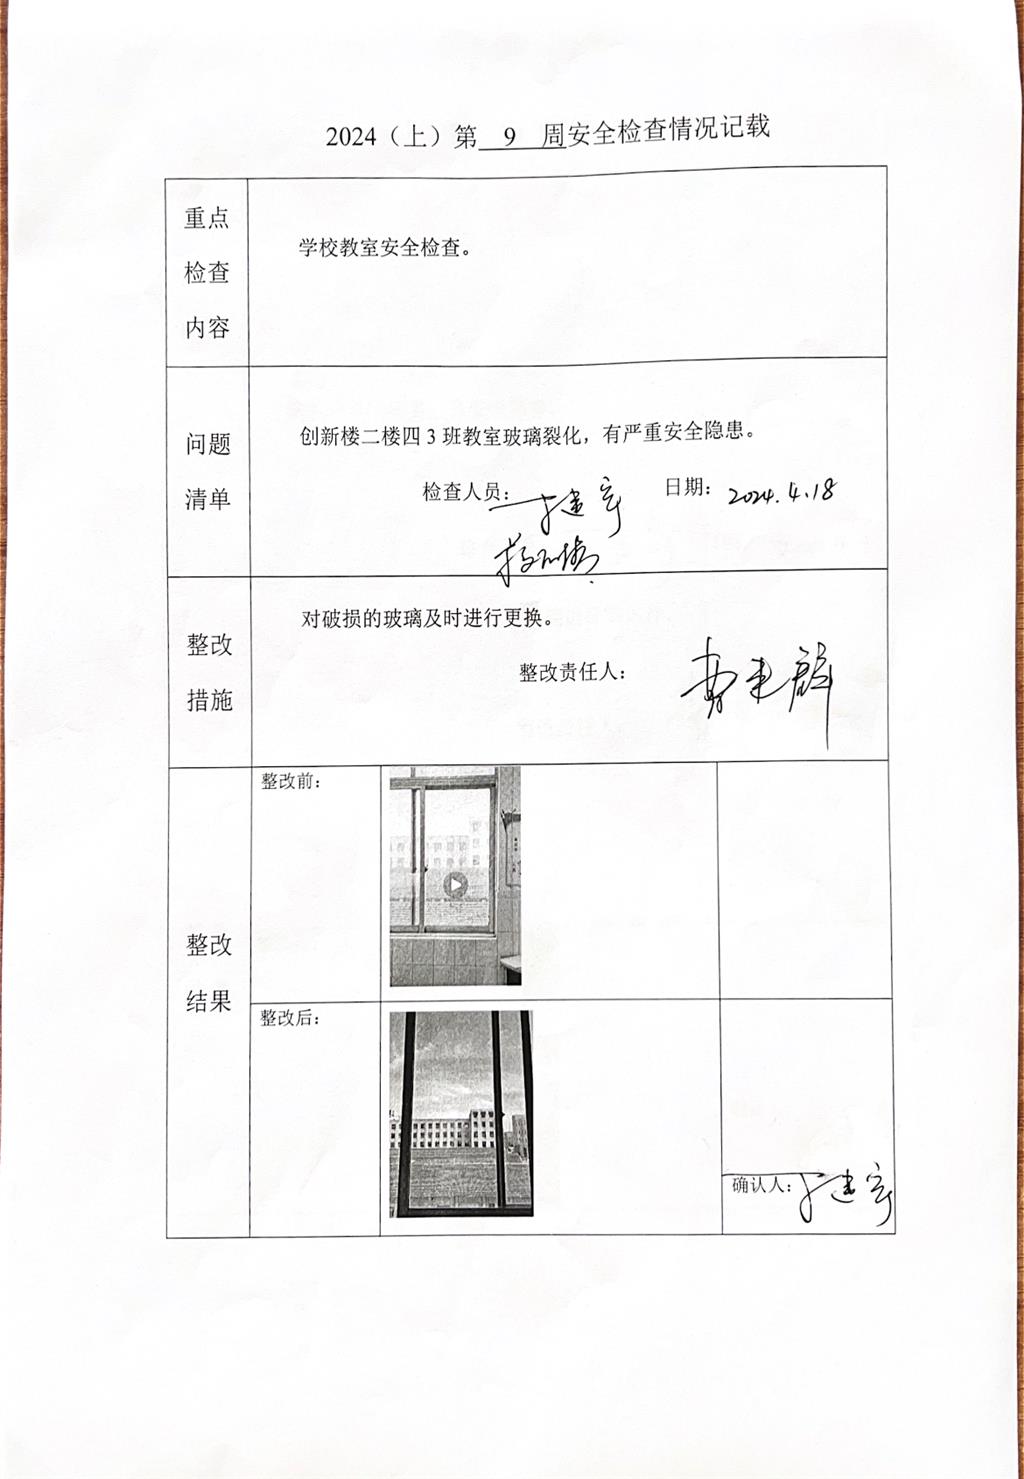 2024（上）第 9 周安全检查情况记载
重点
检查
内容
学校教室安全检查。
问题
清单
创新楼二楼四 3 班教室玻璃裂化，有严重安全隐患。
检查人员：
日期：2024.4.18
整改
措施
对破损的玻璃及时进行更换。
整改责任人：
整改
结果
整改前：
整改后：
确认人：